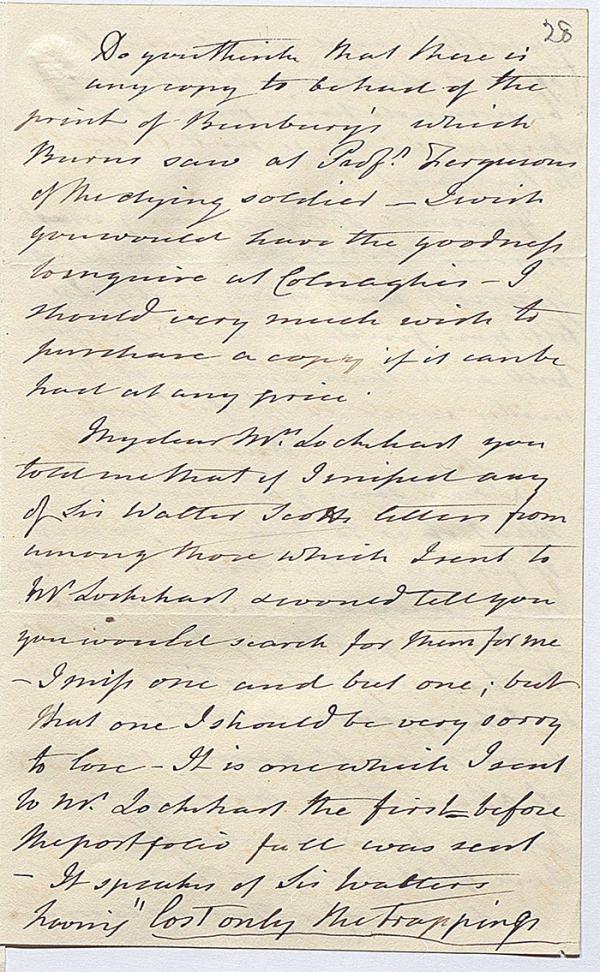 28
Do you think that there is
any copy to be had of the
print of Bunbury's which
Burns saw at Prof.r Fergusons
of the dying soldier – I wish
you would have the goodness
to inquire at Colnaghis – I
should very much wish to
purchase a copy if it can be
had at any price.
My dear Mrs. Lockhart you
told me that if I missed any
of Sir Walter Scotts letters from
among those which I sent to
Mr Lockhart & would tell you
you would search for them for me
– I miss one and but one; but
that one I should be very sorry
to lose – It is one which I sent
to Mr. Lockhart the first – before
the portfolio full was sent
– It speaks of Sir Walters
having "lost only the trappings